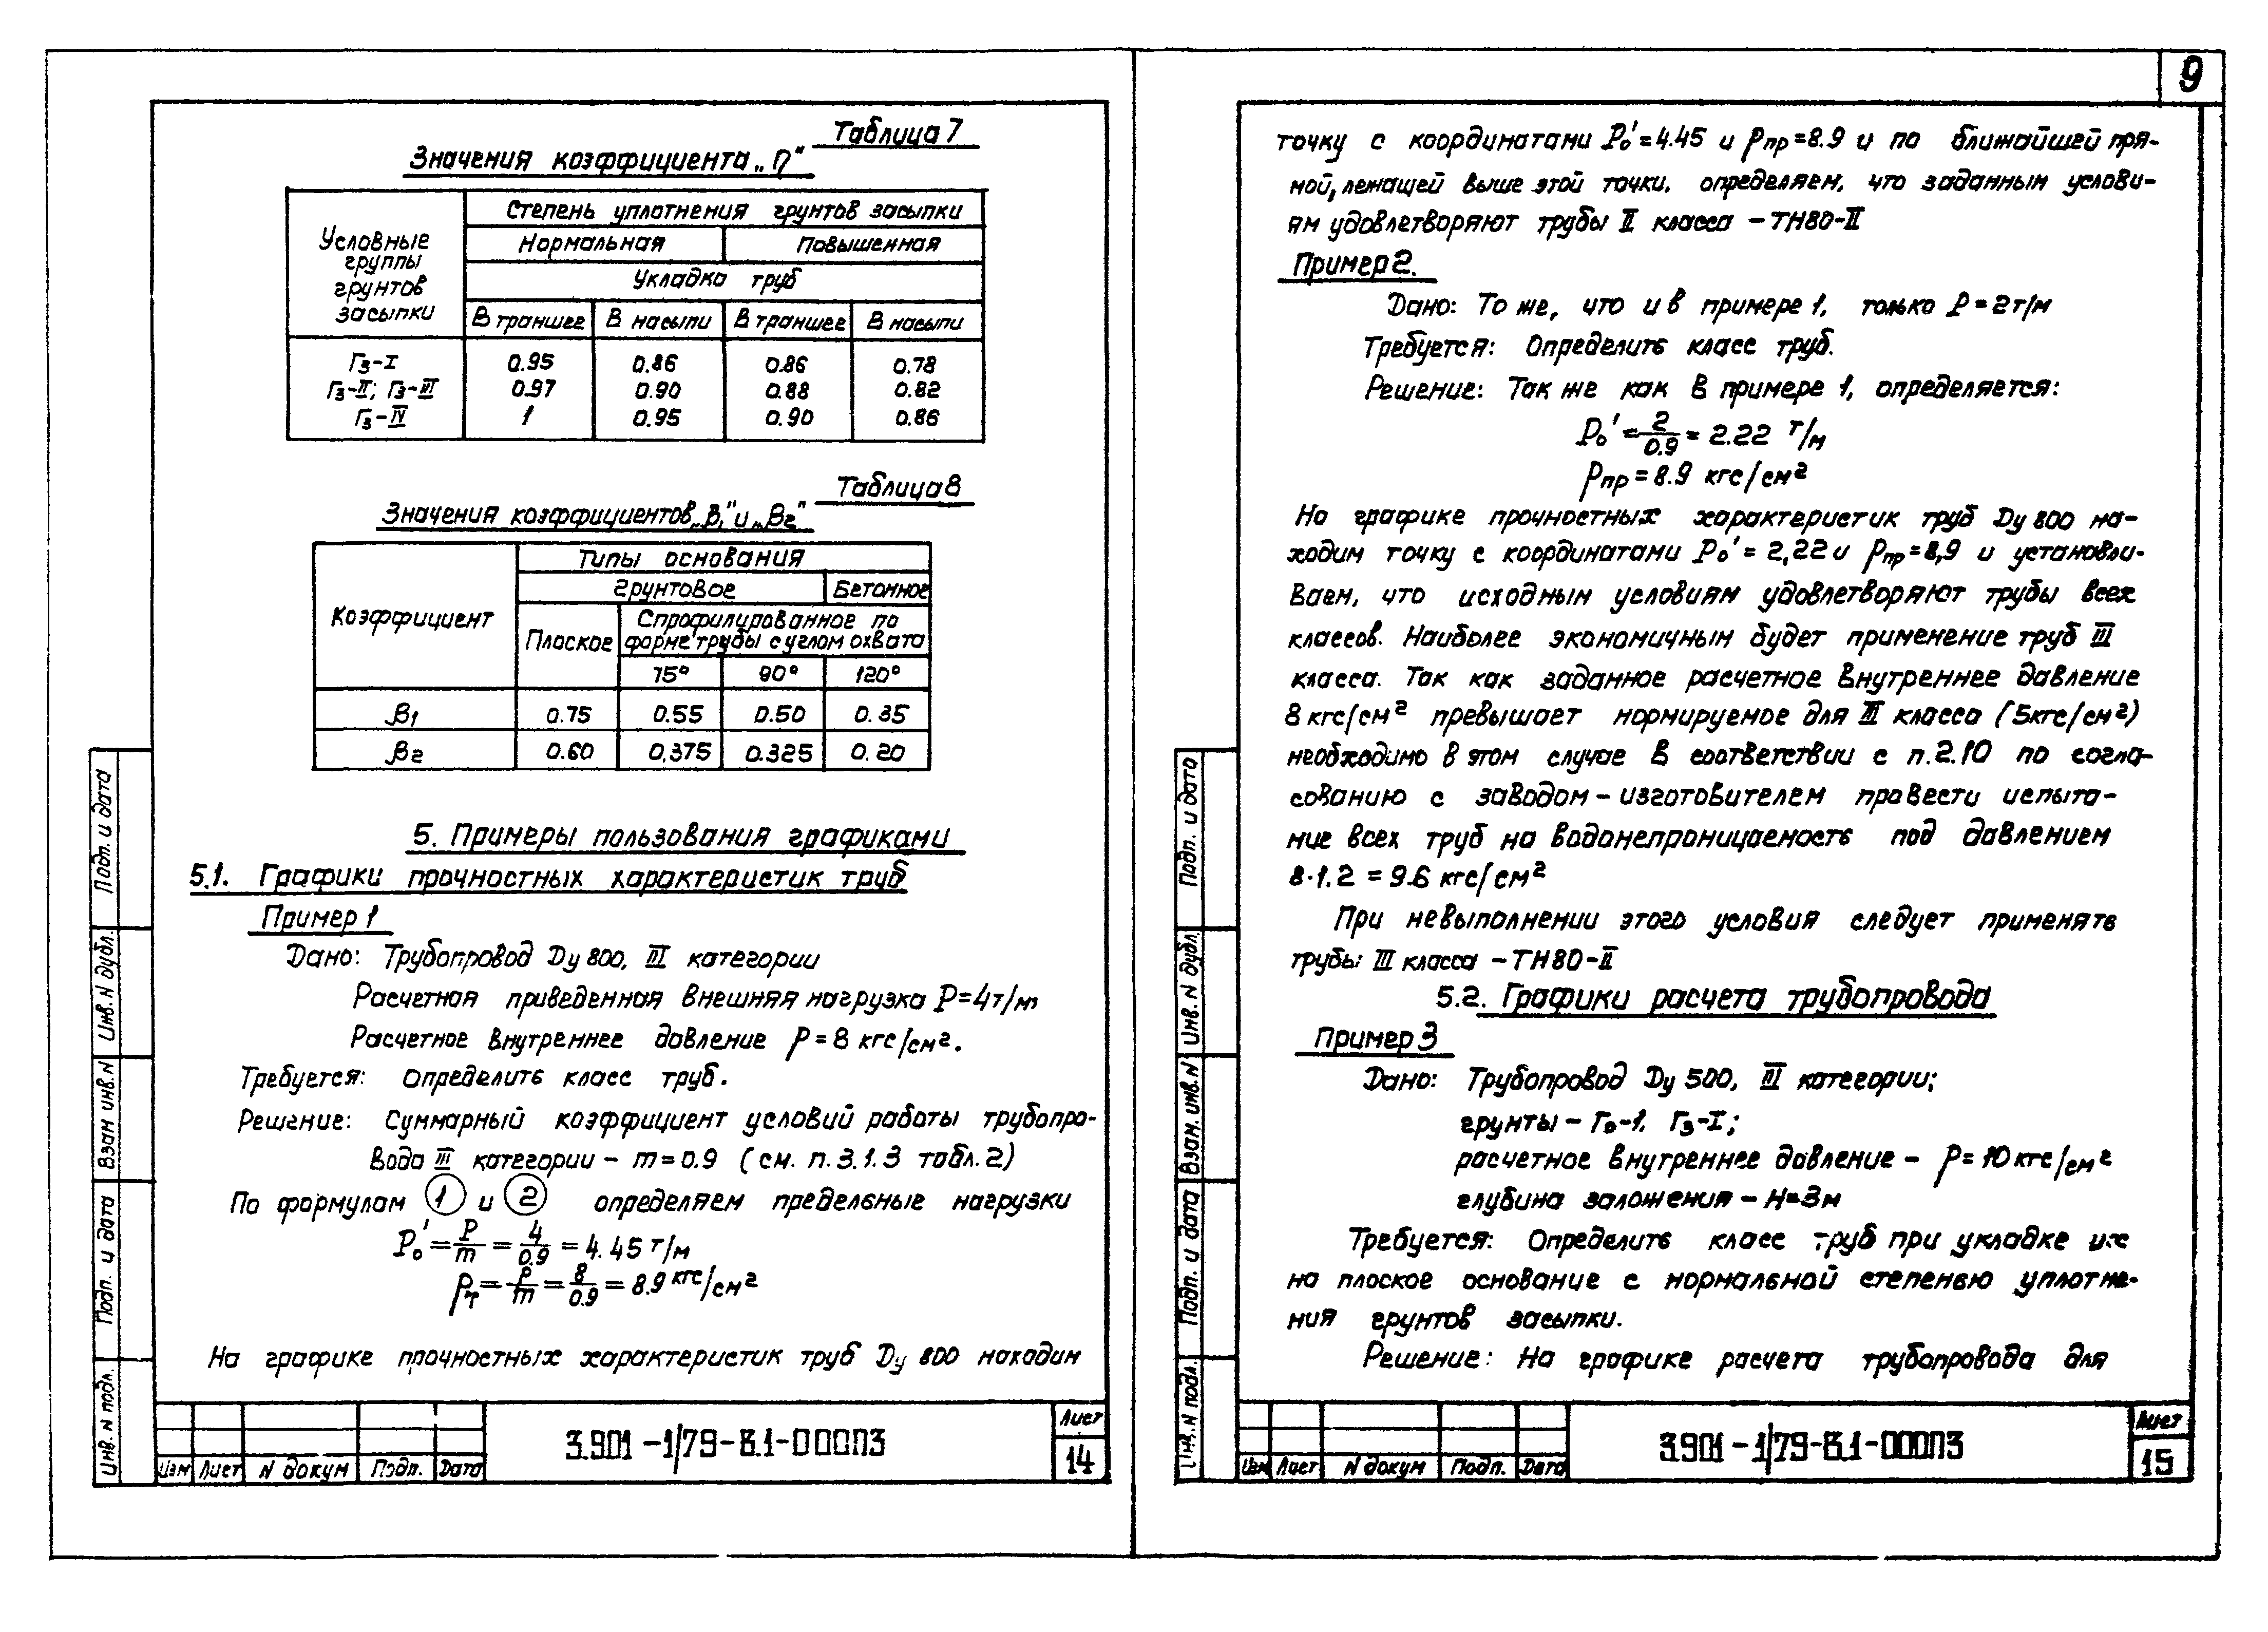 9
Таблица 7
Значения коэффициента „η"
Условные группы грунтов засыпки
Степень уплотнения грунтов засыпки
Нормальная Повышенная
Укладка труб
В траншее В насыпи В траншее В насыпи
Гз-I 0.95 0.86 0.86 0.78
Гз-II; Гз-III 0.97 0.90 0.88 0.82
Гз-IV 1 0.95 0.90 0.86
Таблица 8
Значения коэффициентов „β₁" и „β₂"
Коэффициент
Типы основания
Грунтовое Бетонное
Плоское
Спрофилированное по
форме трубы с углом охвата
75° 90° 120°
β₁ 0.75 0.55 0.50 0.35
β₂ 0.60 0,375 0.325 0.20
5. Примеры пользования графиками
5.1. Графики прочностных характеристик труб
Пример 1
Дано: Трубопровод Dу 800, III категории
Расчетная приведенная внешняя нагрузка P=4т/м,
Расчетное внутреннее давление p=8 кгс/см².
Требуется: Определить класс труб.
Решение: Суммарный коэффициент условий работы трубопро-
вода III категории – m=0.9 (см. п.3.1.3 табл.2)
По формулам 1 и 2 определяем предельные нагрузки
P₀' = P/m = 4/0.9 = 4.45 т/м
pт = p/m = 8/0.9 = 8.9 кгс/см²
На графике прочностных характеристик труб Dу 800 находим
Изм Лист N докум Подп. Дата
3.901-1/79-В.1-000ПЗ
Лист
14
Подп. и дата
Инв. N дубл.
Взам инв. N
Подп. и дата
Инв. N подл.
точку с координатами P₀'=4.45 и pпр=8.9 и по ближайшей пря-
мой, лежащей выше этой точки, определяем, что заданным услови-
ям удовлетворяют трубы II класса – ТН80-II
Пример 2.
Дано: То же, что и в примере 1, только P=2т/м
Требуется: Определить класс труб.
Решение: Так же как в примере 1, определяется:
P₀' = 2/0.9 = 2.22 т/м
pпр = 8.9 кгс/см²
На графике прочностных характеристик труб Dу 800 на-
ходим точку с координатами P₀'=2,22 и pпр=8,9 и установли-
ваем, что исходным условиям удовлетворяют трубы всех
классов. Наиболее экономичным будет применение труб III
класса. Так как заданное расчетное внутреннее давление
8 кгс/см² превышает нормируемое для III класса (5кгс/см²)
необходимо в этом случае в соответствии с п.2.10 по согла-
сованию с заводом-изготовителем провести испыта-
ние всех труб на водонепроницаемость под давлением
8·1.2 = 9.6 кгс/см²
При невыполнении этого условия следует применять
трубы III класса – ТН80-II
5.2. Графики расчета трубопровода
Пример 3
Дано: Трубопровод Dу 500, III категории;
грунты – Го-1, Гз-I;
расчетное внутреннее давление – p=10 кгс/см²
глубина заложения – H=3м
Требуется: Определить класс труб при укладке их
на плоское основание с нормальной степенью уплотне-
ния грунтов засыпки.
Решение: На графике расчета трубопровода для
Изм Лист N докум Подп. Дата
3.901-1/79-В.1-000ПЗ
Лист
15
Подп. и дата
Инв. N дубл.
Взам. инв. N
Подп. и дата
Инв. N подл.